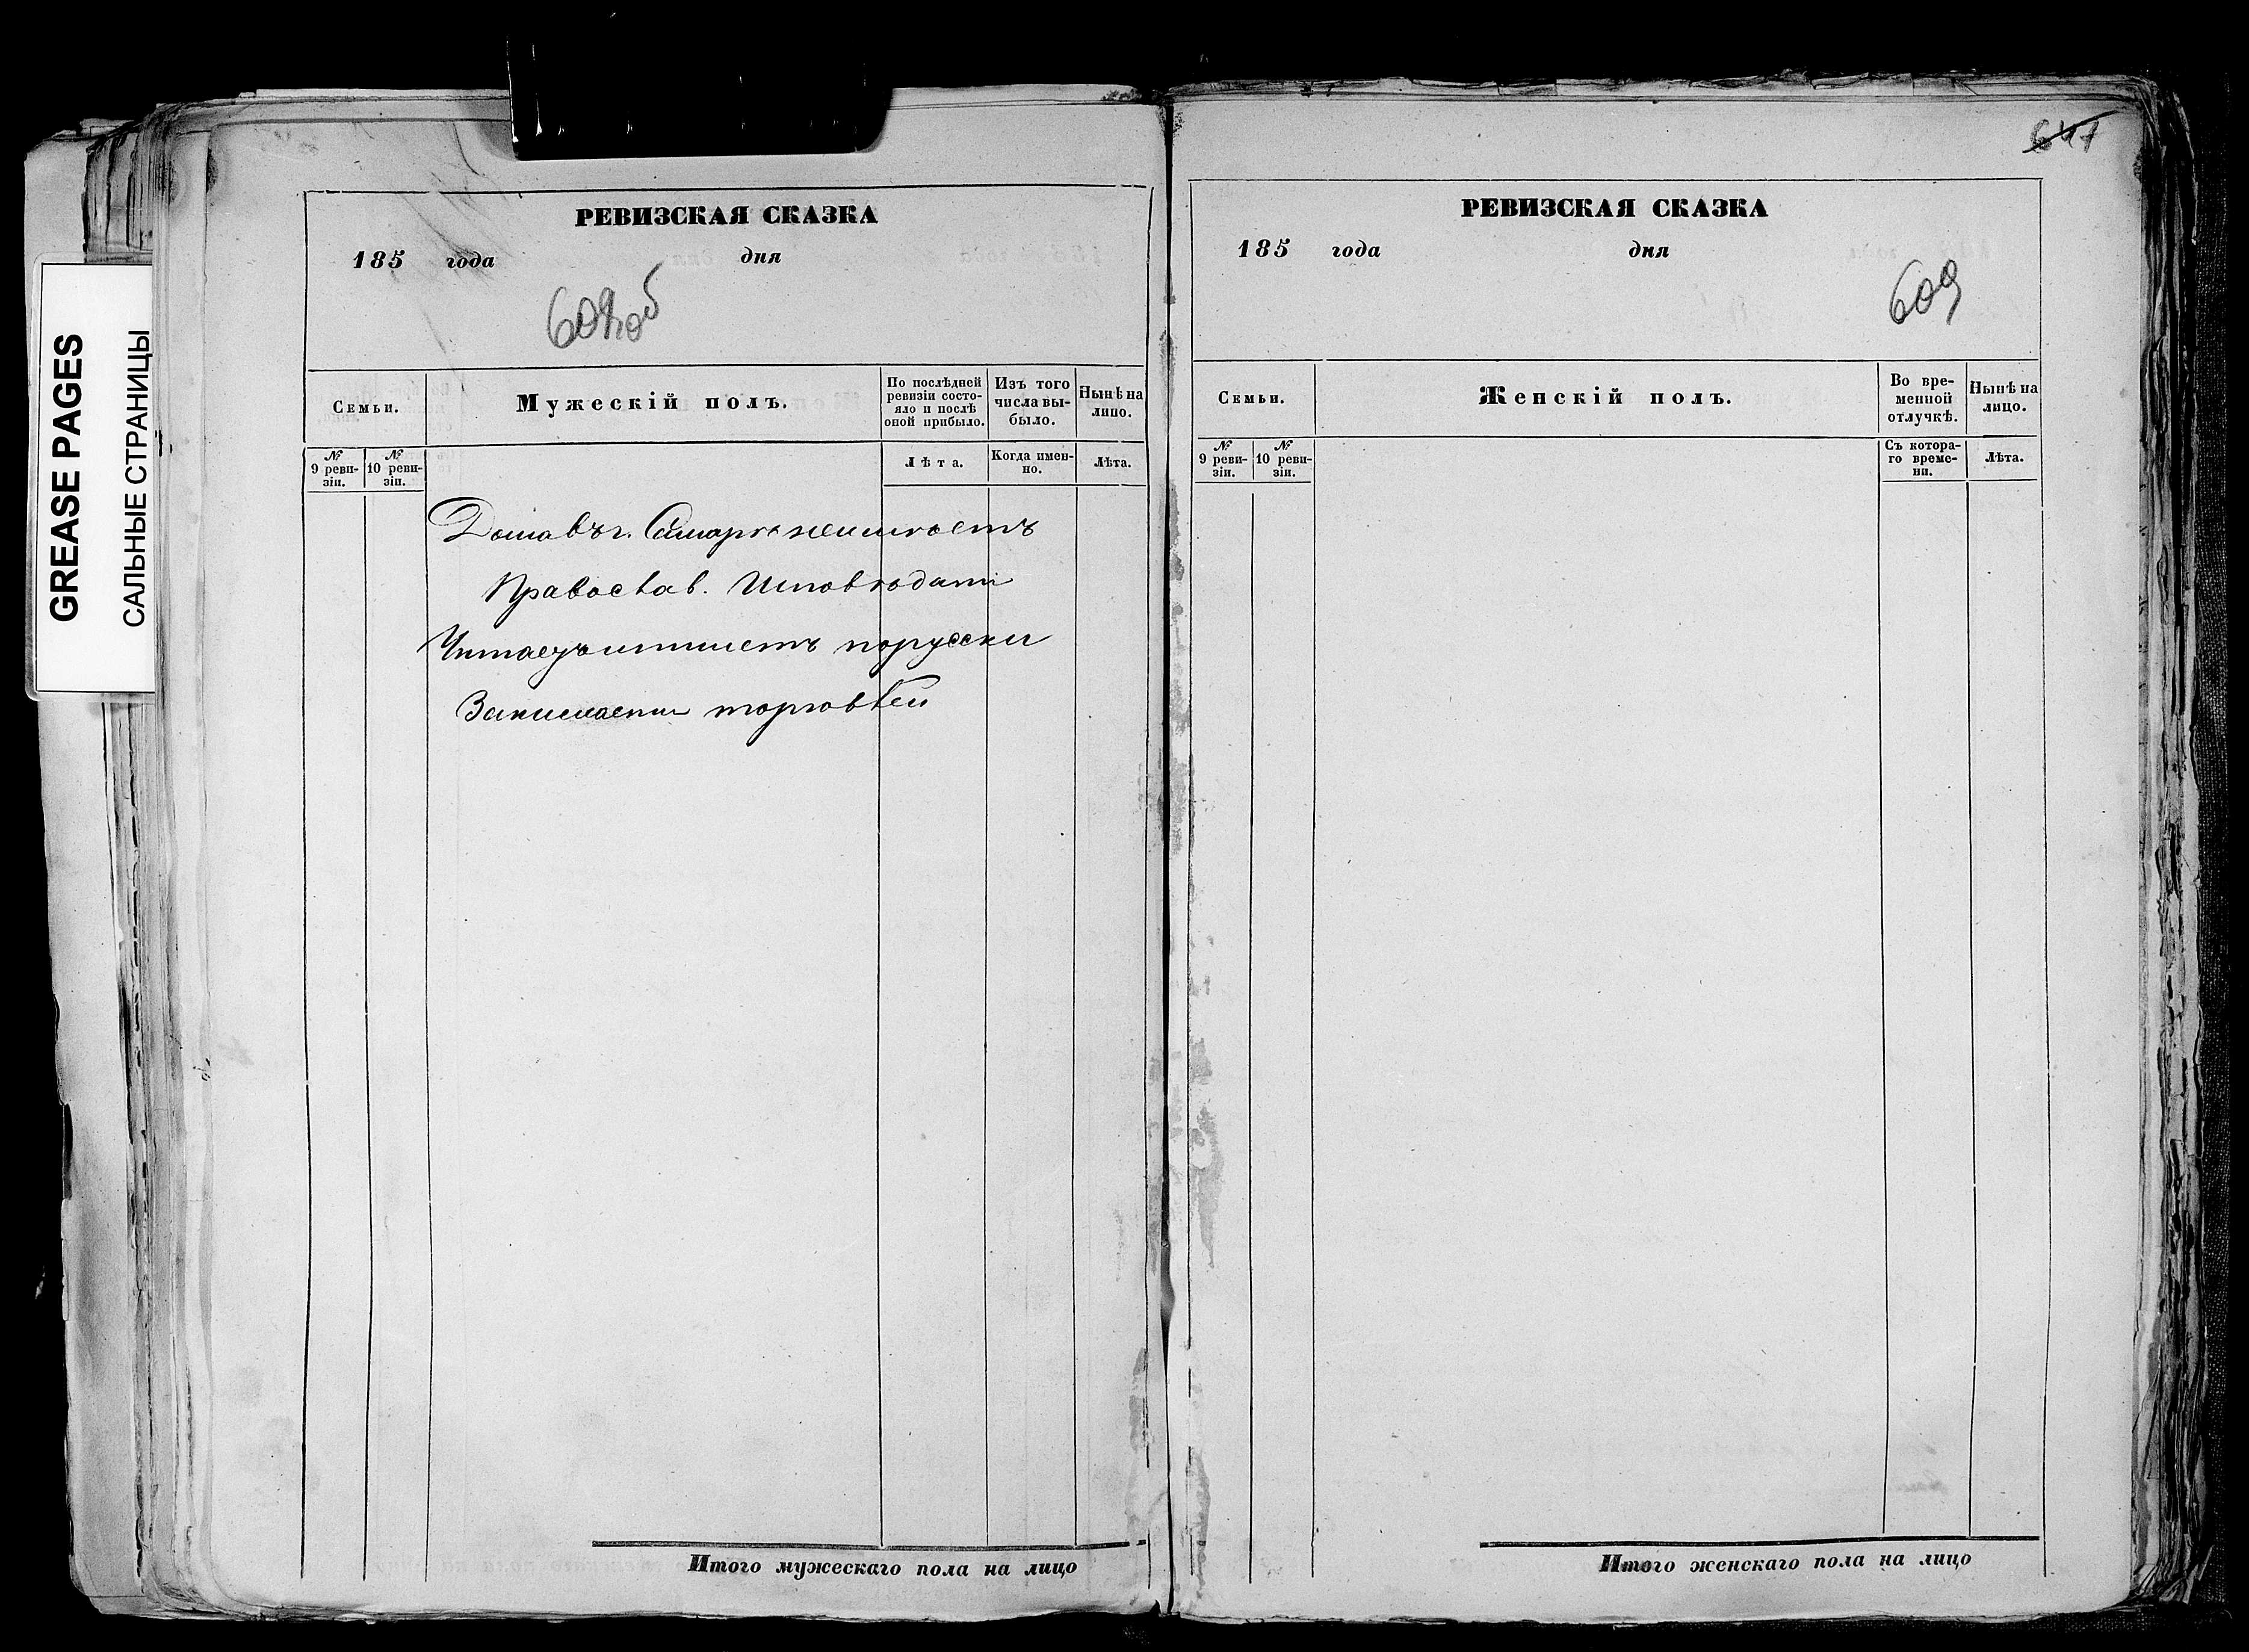 647
GREASE PAGES
САЛЬНЫЕ СТРАНИЦЫ
РЕВИЗСКАЯ СКАЗКА
185 года дня
609об
Семьи.
Мужескій полъ.
По послѣдней ревизіи состояло и послѣ оной прибыло.
Изъ того числа выбыло.
Нынѣ на лицо.
№ 9 ревизіи.
№ 10 ревизіи.
Лѣта.
Когда именно.
Лѣта.
Дома въ г. Самаре неимѣетъ
Православ. Исповѣдани
Читаетъ и пишетъ порусски
Занимаетси торговлей
Итого мужескаго пола на лицо
РЕВИЗСКАЯ СКАЗКА
185 года дня
609
Семьи.
Женскій полъ.
Во временной отлучкѣ.
Нынѣ на лицо.
№ 9 ревизіи.
№ 10 ревизіи.
Съ котораго времени.
Лѣта.
Итого женскаго пола на лицо